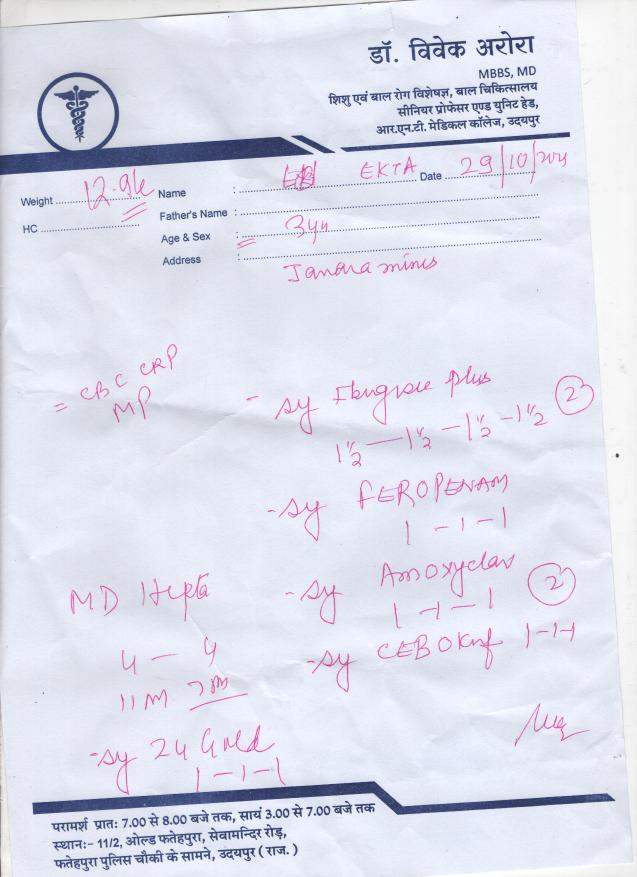 डॉ. विवेक अरोरा
MBBS, MD
शिशु एवं बाल रोग विशेषज्ञ, बाल चिकित्सालय
सीनियर प्रोफेसर एण्ड युनिट हेड,
आर.एन.टी. मेडिकल कॉलेज, उदयपुर
Weight 12.9k Name : EKTA Date 29/10/
HC Father's Name :
Age & Sex : 3yr
Address : Janara mines
= CBC CRP
MP
- Sy plus 2
1½ — 1½ - 1½ - 1½
- Sy FEROPENAM
1 - 1 - 1
MD Hepta - Sy Amoxyclav 2
1 - 1 - 1
4 - 4 - Sy 1-1-1
11M 7M
- Sy 24 Gold
1 - 1 - 1
परामर्श प्रातः 7.00 से 8.00 बजे तक, सायं 3.00 से 7.00 बजे तक
स्थानः- 11/2, ओल्ड फतेहपुरा, सेवामन्दिर रोड़,
फतेहपुरा पुलिस चौकी के सामने, उदयपुर ( राज. )